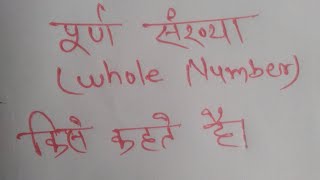 पूर्ण संख्या
(Whole Number)
किसे कहते है।